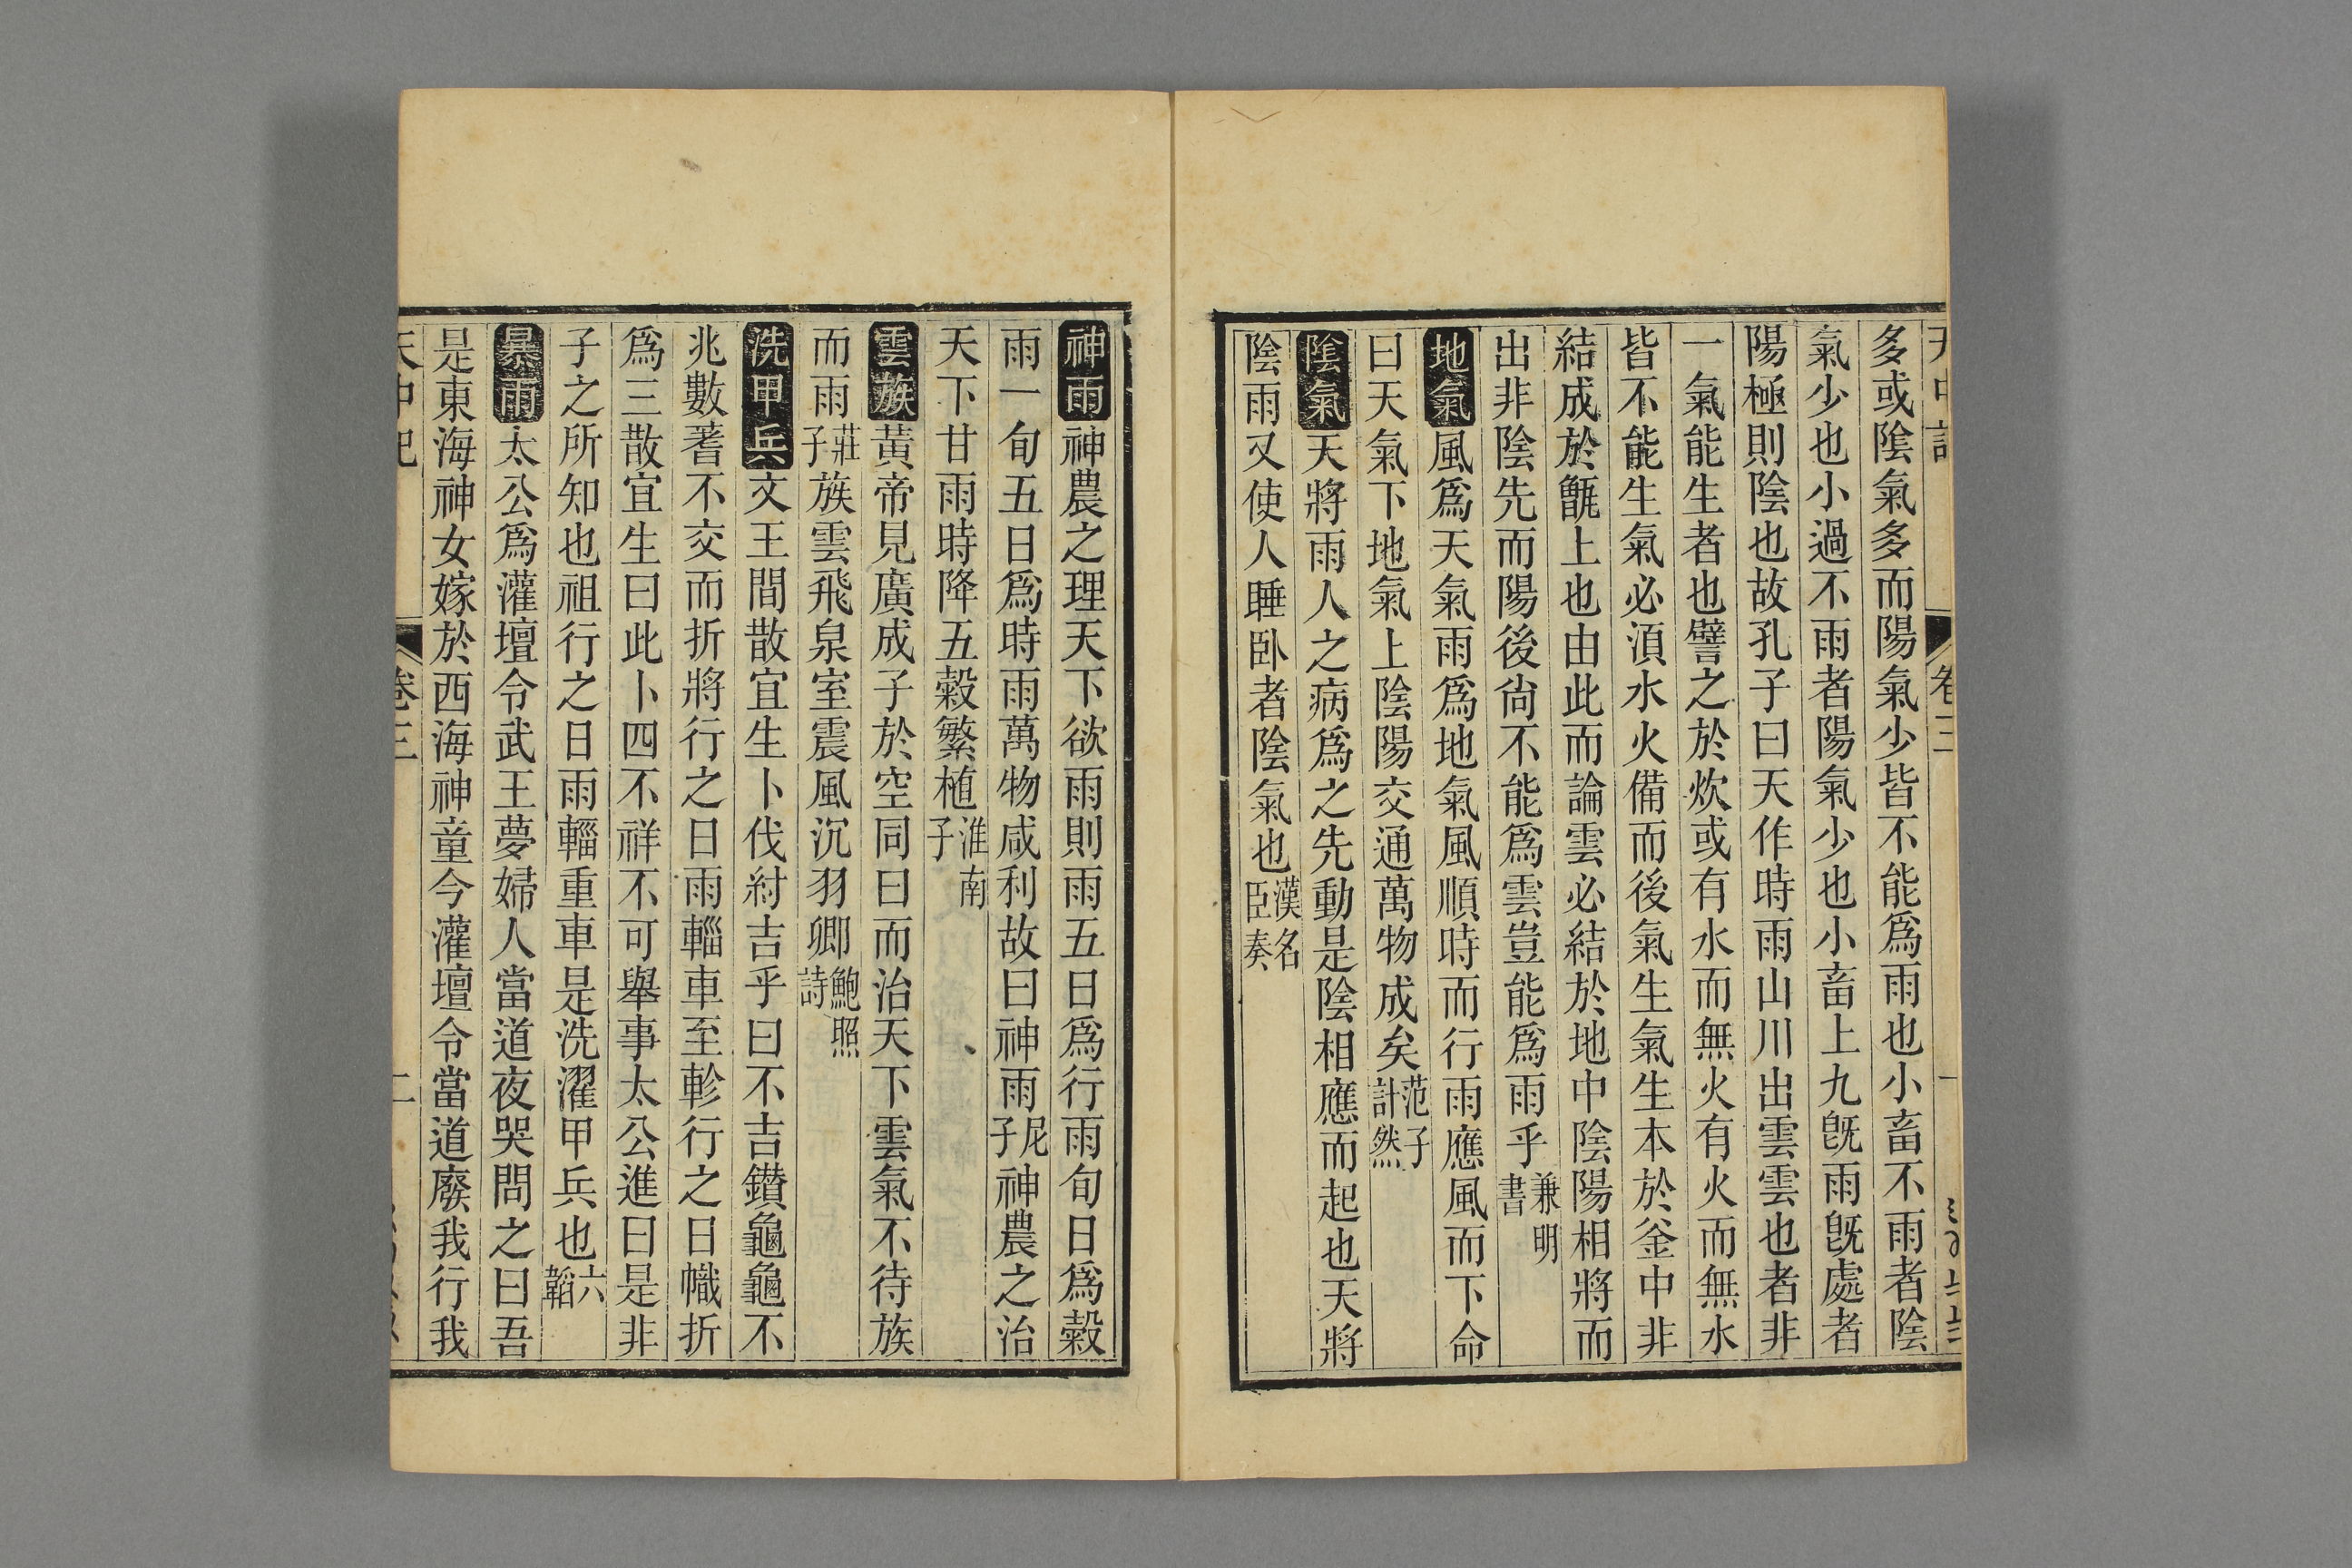 多或陰氣多而陽氣少皆不能爲雨也小畜不雨者陰
氣少也小過不雨者陽氣少也小畜上九旣雨旣處者
陽極則陰也故孔子曰天作時雨山川出雲雲也者非
一氣能生者也譬之於炊或有水而無火有火而無水
皆不能生氣必湏水火備而後氣生氣生本於釜中非
結成於甑上也由此而論雲必結於地中陰陽相將而
出非陰先而陽後尙不能爲雲豈能爲雨乎兼明書
地氣風爲天氣雨爲地氣風順時而行雨應風而下命
曰天氣下地氣上陰陽交通萬物成矣范子計然
陰氣天將雨人之病爲之先動是陰相應而起也天將
陰雨又使人睡卧者陰氣也漢名臣奏
神雨神農之理天下欲雨則雨五日爲行雨旬日爲穀
雨一旬五日爲時雨萬物咸利故曰神雨尼子神農之治
天下甘雨時降五穀繁植淮南子
雲族黃帝見廣成子於空同曰而治天下雲氣不待族
而雨莊子族雲飛泉室震風沉羽卿鮑照詩
洗甲兵文王間散宜生卜伐紂吉乎曰不吉鑚龜龜不
兆數蓍不交而折將行之日雨輜車至軫行之日幟折
爲三散宜生曰此卜四不祥不可舉事太公進曰是非
子之所知也祖行之日雨輜重車是洗濯甲兵也六韜
暴雨太公爲灌壇令武王夢婦人當道夜哭問之曰吾
是東海神女嫁於西海神童今灌壇令當道廢我行我
天中記
卷三
二